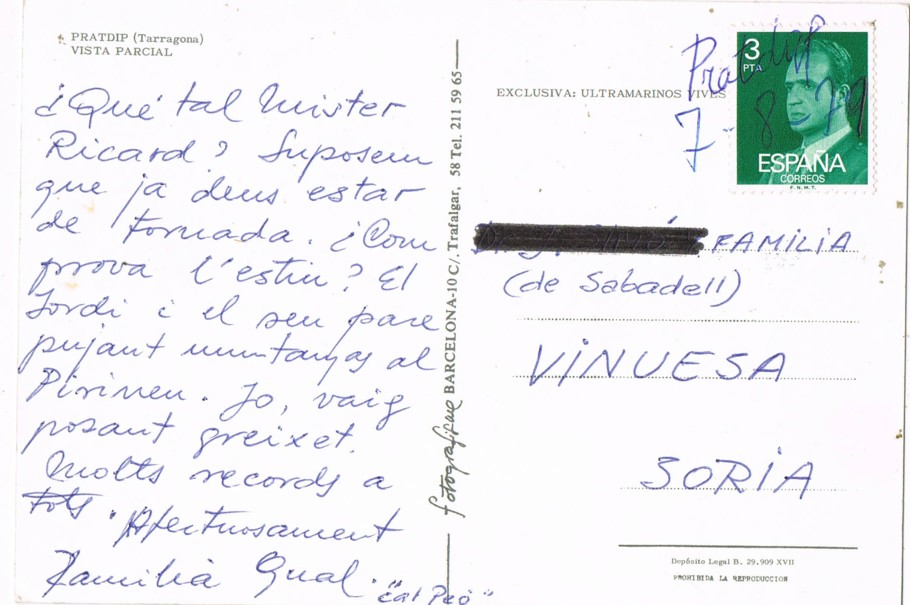 PRATDIP (Tarragona)
VISTA PARCIAL
¿Qué tal Mister
Ricard? Suposem
que ja deus estar
de tornada. ¿Com
prova l'estiu? El
Jordi i el seu pare
pujant muntanyas al
Pirineu. Jo, vaig
posant greixet.
Molts records a
tots. Afectuosament
Familia Gual. "Cal Peó"
fotografiane BARCELONA-10 C/. Trafalgar, 58 Tel. 211 59 65
EXCLUSIVA: ULTRAMARINOS VIVES
Pratdipp
7-8-79
3
PTA
ESPAÑA
CORREOS
F.N.M.T.
FAMILIA
(de Sabadell)
VINUESA
SORIA
Depósito Legal B. 29.909 XVII
PROHIBIDA LA REPRODUCCION